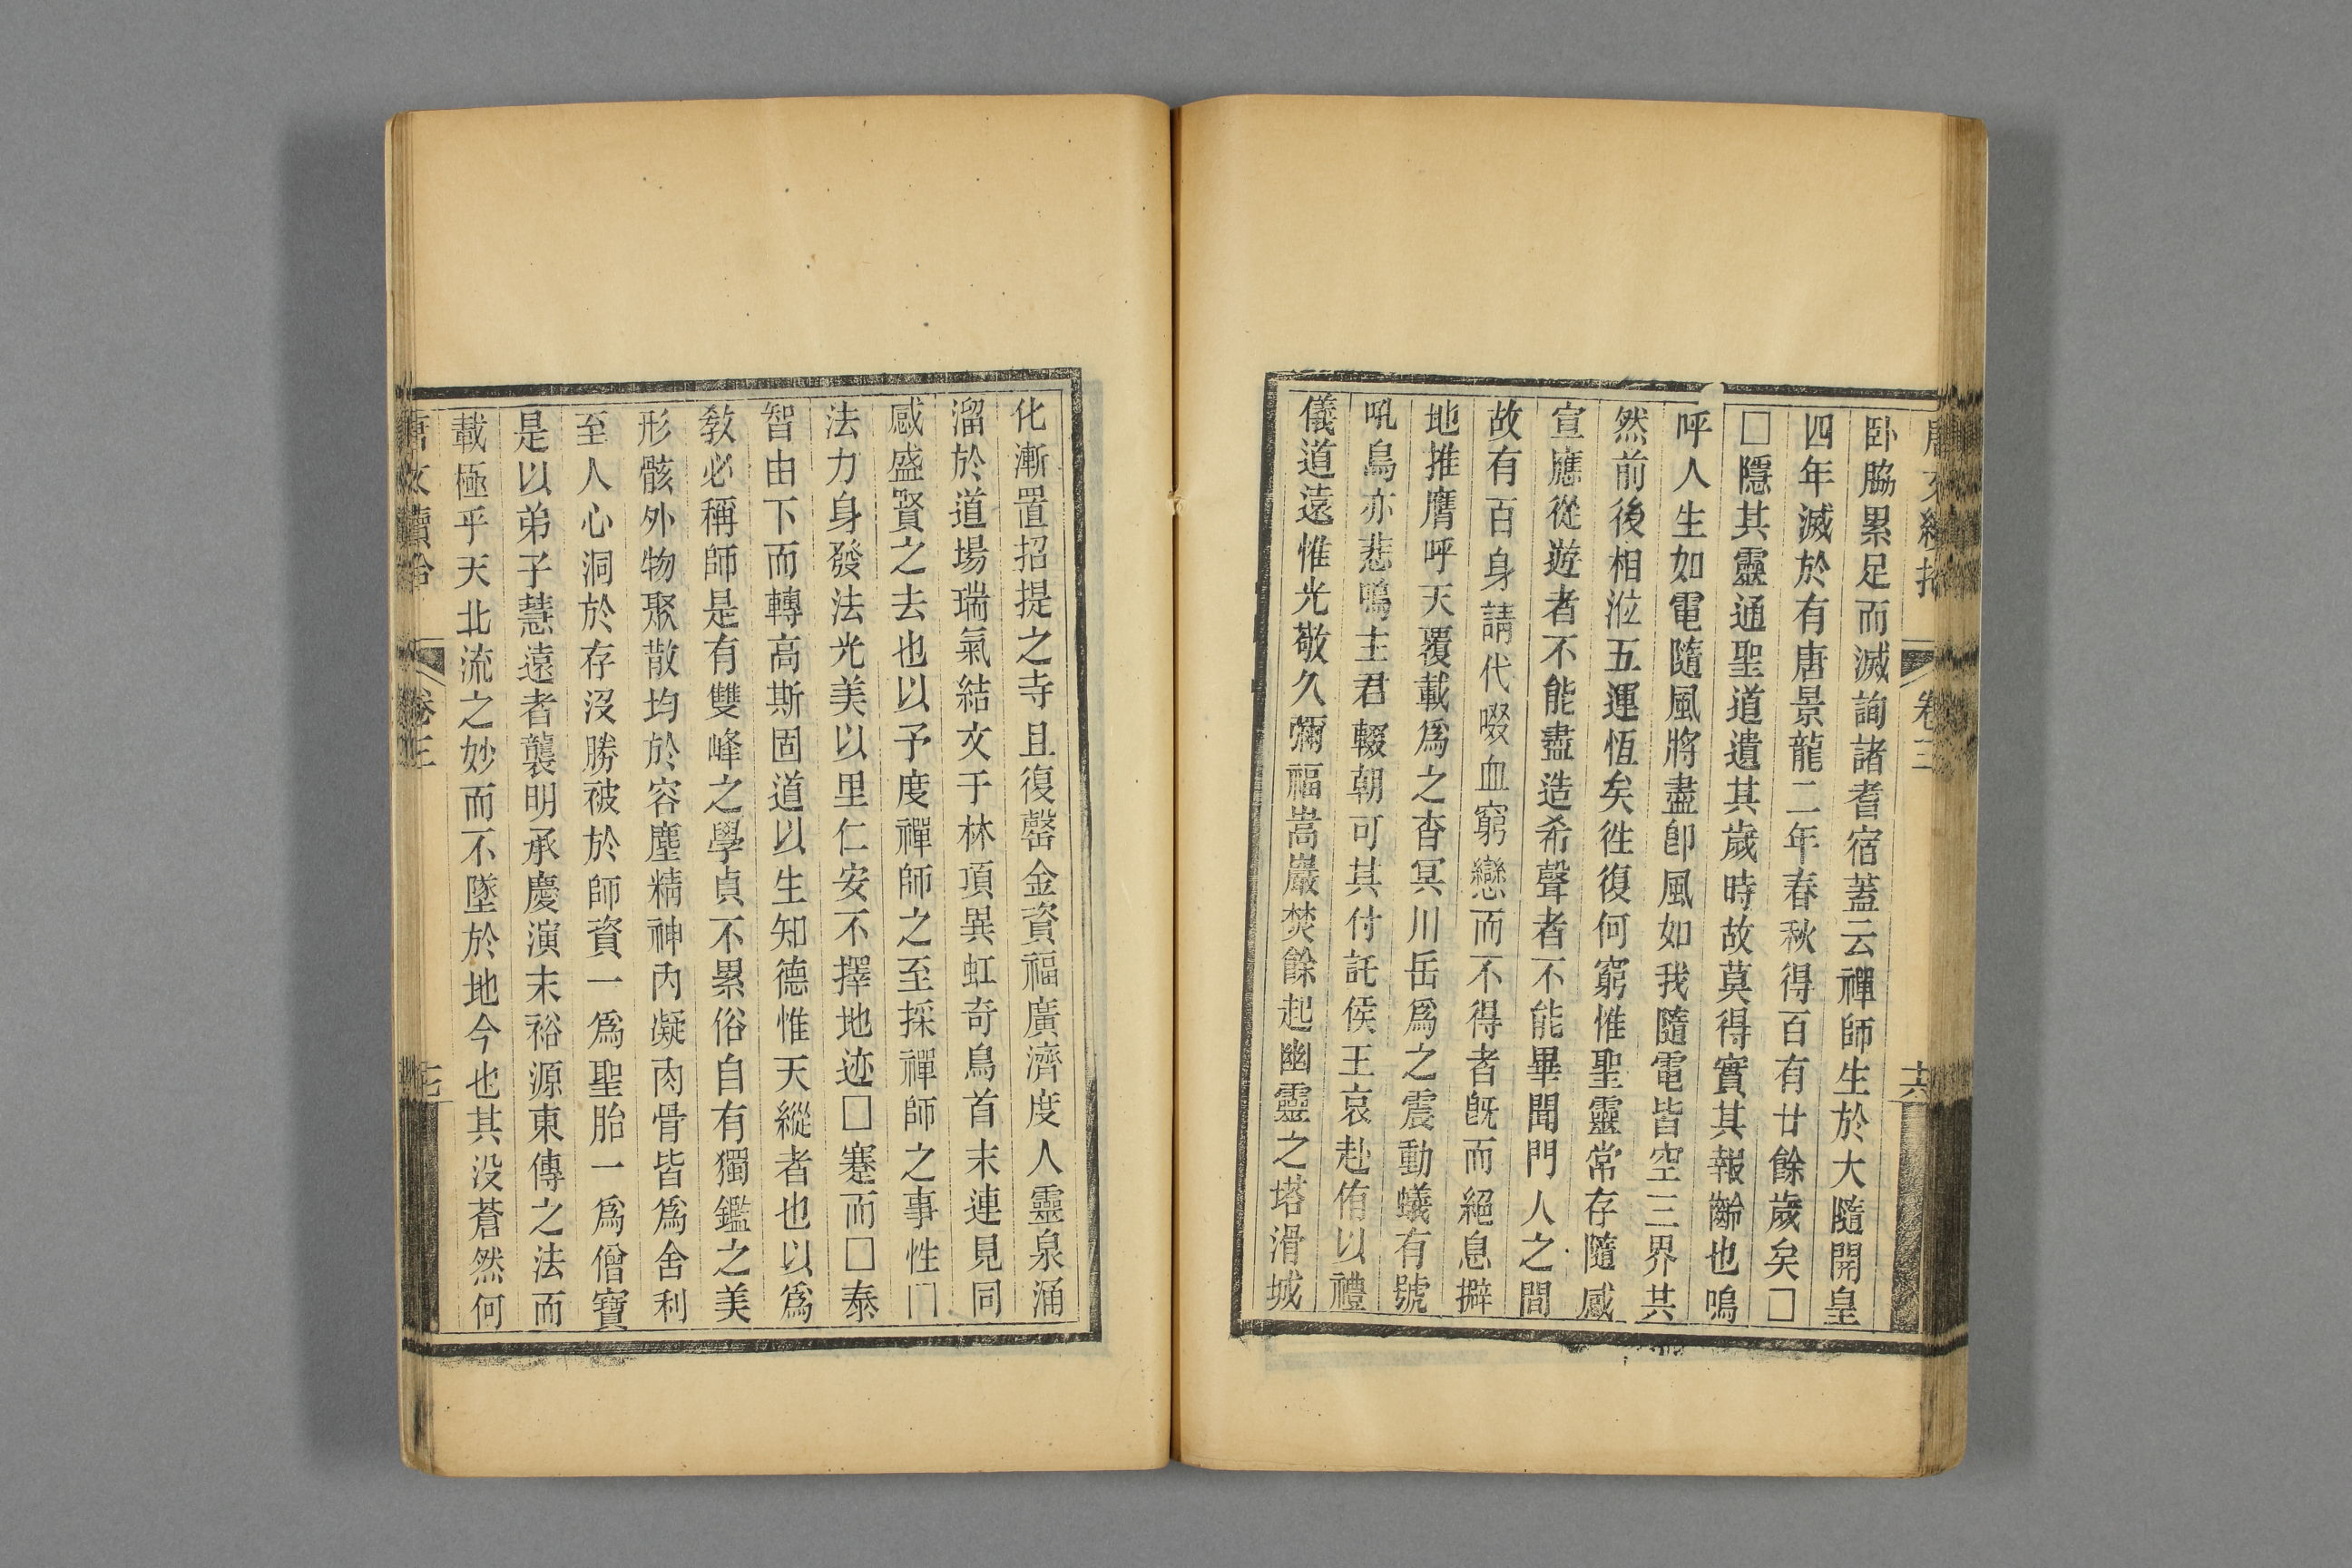 卧脇累足而滅詢諸耆宿蓋云禪師生於大隨開皇
四年滅於有唐景龍二年春秋得百有廿餘歲矣□
□隱其靈通聖道遺其歲時故莫得實其報齡也嗚
呼人生如電隨風將盡卽風如我隨電皆空三界共
然前後相涖五運恆矣徃復何窮惟聖靈常存隨感
宣應從遊者不能盡造希聲者不能畢聞門人之間
故有百身請代啜血窮戀而不得者旣而絕息擗
地推膺呼天覆載爲之杳冥川岳爲之震動蟻有號
吼鳥亦悲鳴主君輟朝可其付託侯王哀赴侑以禮
儀道遠惟光敬久彌福嵩巖焚餘起幽靈之塔滑城
卷三
十六
化漸置招提之寺且復罄金資福廣濟度人靈泉涌
溜於道場瑞氣結文于林項異虹奇鳥首末連見同
感盛賢之去也以予度禪師之至採禪師之事性
法力身發法光美以里仁安不擇地迹□蹇而□泰
智由下而轉高斯固道以生知德惟天縱者也以爲
敎必稱師是有雙峰之學貞不累俗自有獨鑑之美
形骸外物聚散均於容塵精神內凝肉骨皆爲舍利
至人心洞於存沒勝被於師資一爲聖胎一爲僧寶
是以弟子慧遠者襲明承慶演末裕源東傳之法而
載極乎天北流之妙而不墜於地今也其没蒼然何
唐文續拾
卷三